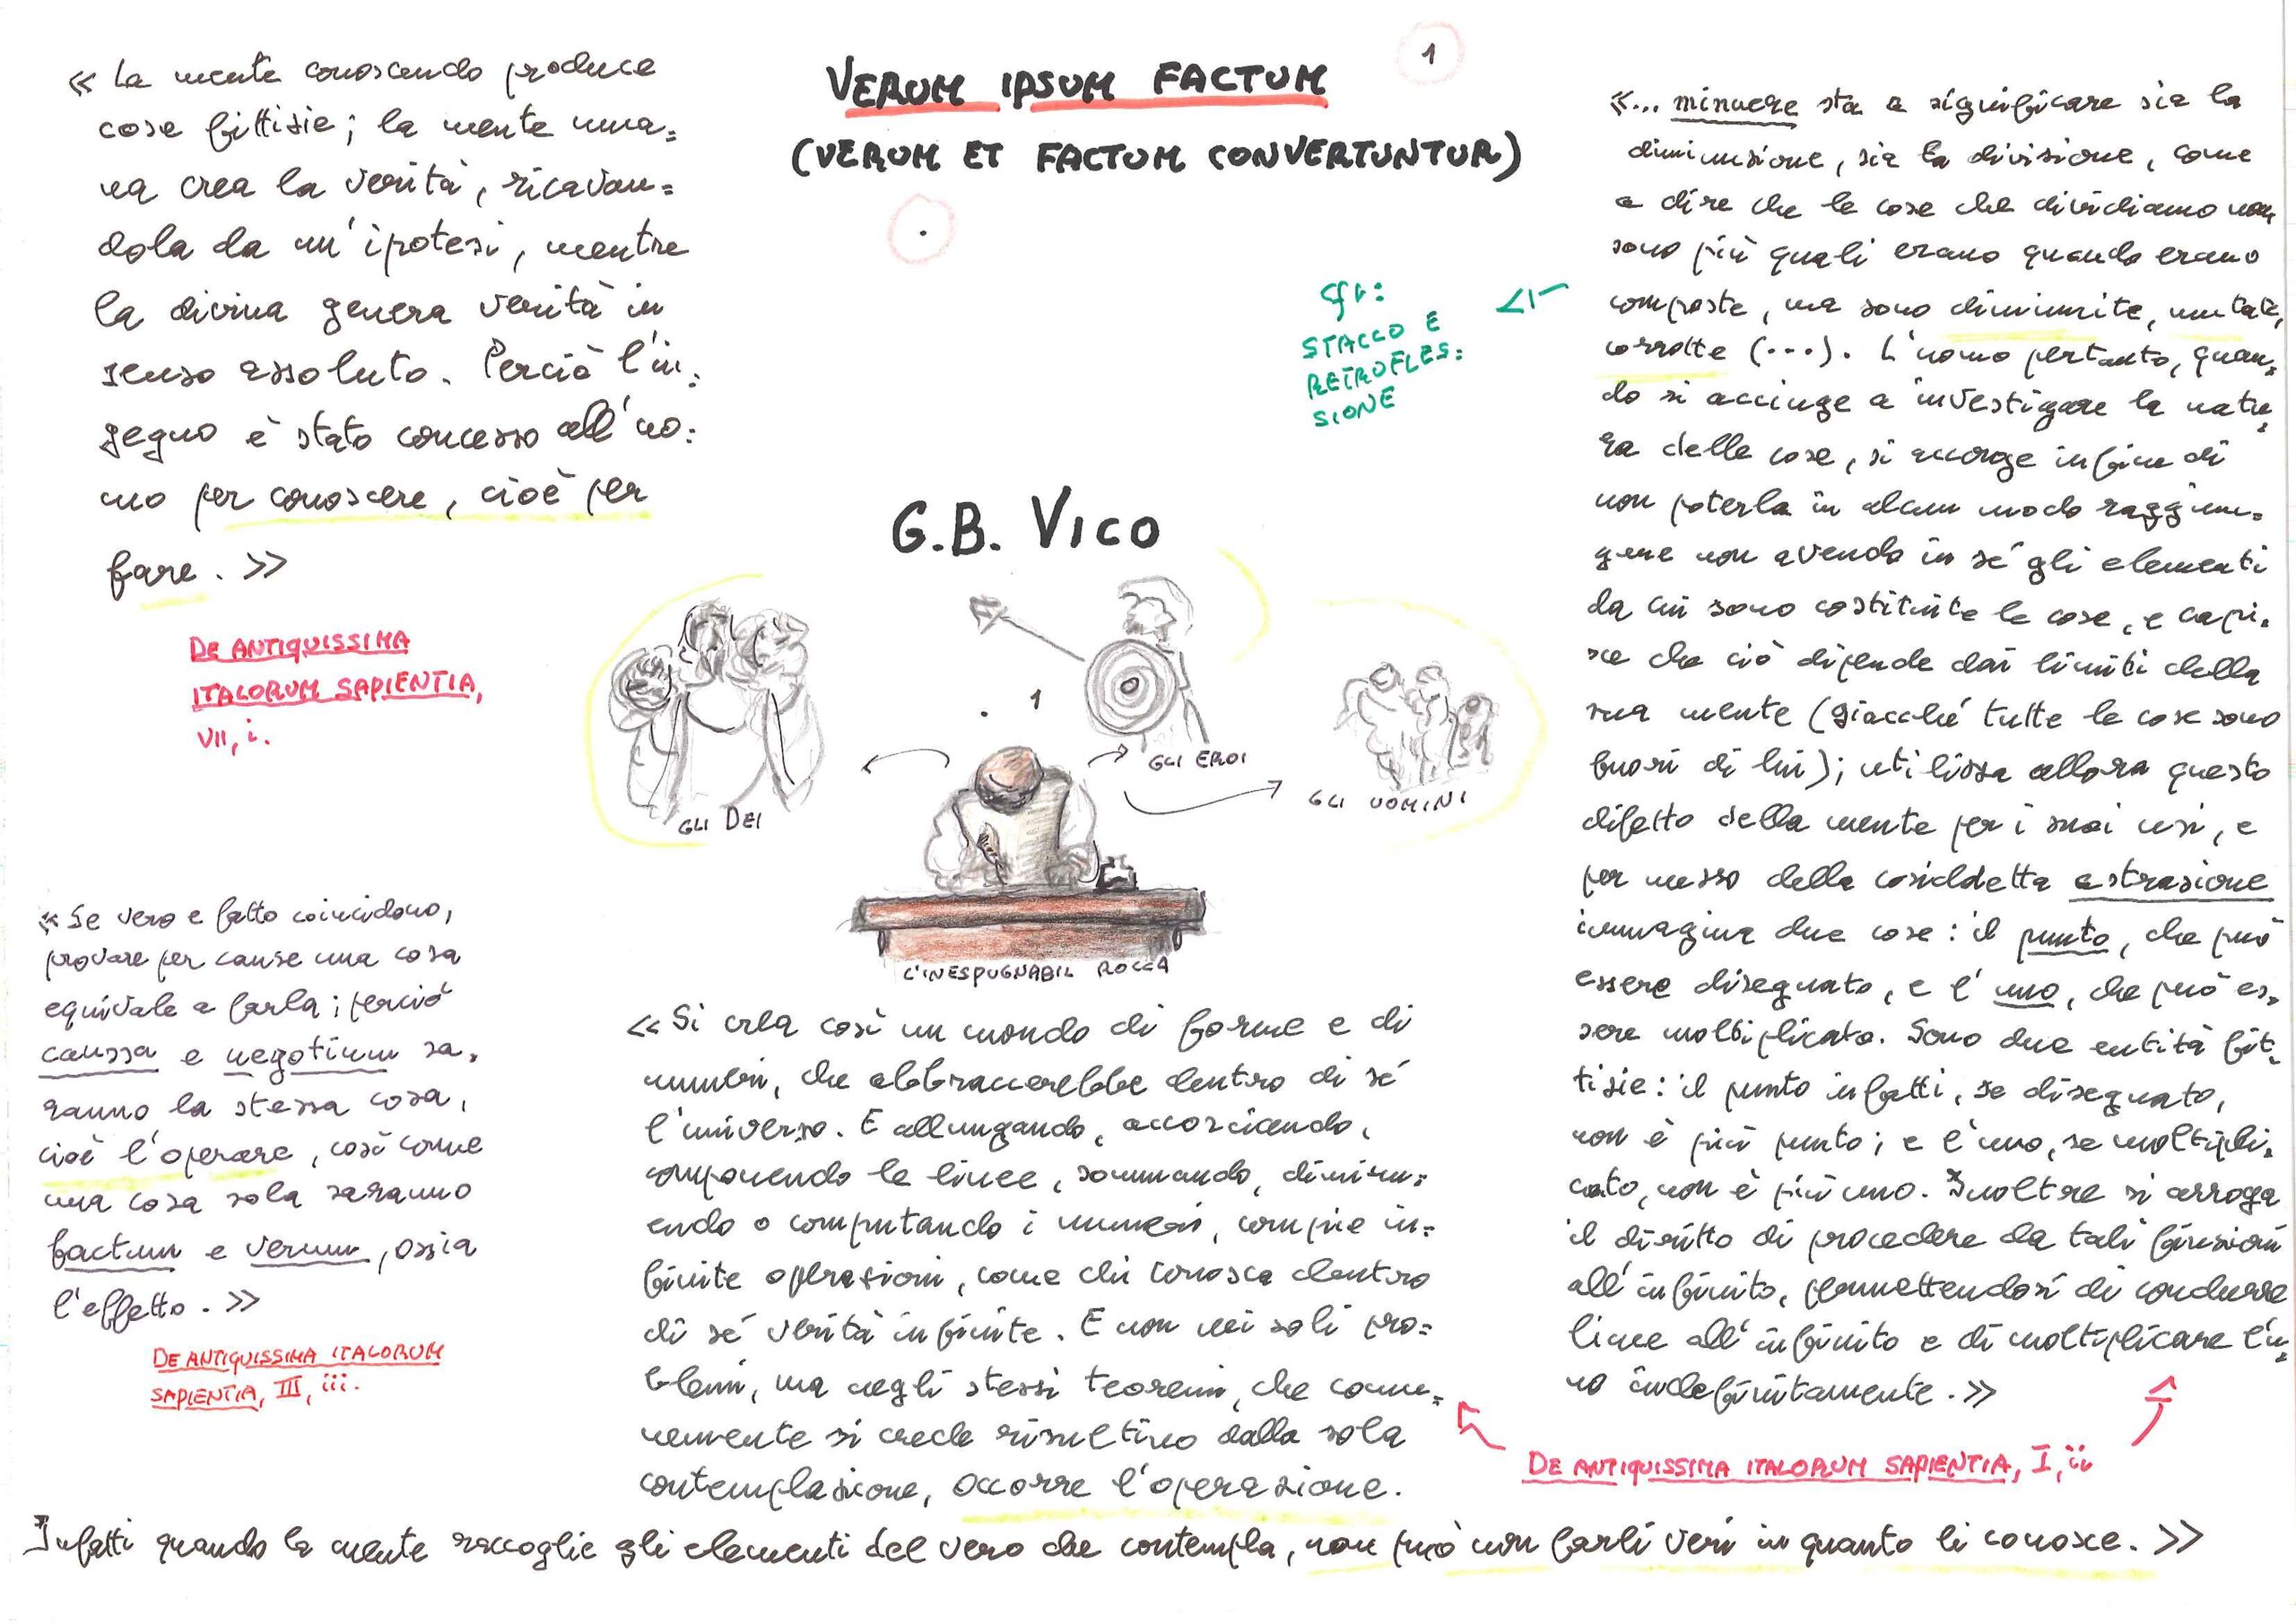 « La mente conoscendo produce
cose fittizie; la mente uma=
na crea la verità, ricavan=
dola da un'ipotesi, mentre
la divina genera verità in
senso assoluto. Perciò l'in=
gegno è stato concesso all'uo=
mo per conoscere, cioè per
fare. »
DE ANTIQUISSIMA
ITALORUM SAPIENTIA,
VII, i.
« Se vero e fatto coincidono,
provare per cause una cosa
equivale a farla; perciò
caussa e negotium sa=
ranno la stessa cosa,
cioè l'operare, così come
una cosa sola saranno
factum e verum, ossia
l'effetto. »
DE ANTIQUISSIMA ITALORUM
SAPIENTIA, III, iii.
1
VERUM IPSUM FACTUM
(VERUM ET FACTUM CONVERTUNTUR)
cfr:
STACCO E
RETROFLES=
SIONE
G.B. VICO
. 1
GLI DEI
GLI EROI
GLI UOMINI
L'INESPUGNABIL ROCCA
« Si crea così un mondo di forme e di
numeri, che abbraccerebbe dentro di sé
l'universo. E allungando, accorciando,
componendo le linee, sommando, diminu=
endo o computando i numeri, compie in=
finite operazioni, come chi conosca dentro
di sé verità infinite. E non nei soli pro=
blemi, ma negli stessi teoremi, che comu=
nemente si crede risultino dalla sola
contemplazione, occorre l'operazione.
Infatti quando la mente raccoglie gli elementi del vero che contempla, non può non farli veri in quanto li conosce. »
«... minuere sta a significare sia la
diminuzione, sia la divisione, come
a dire che le cose che dividiamo non
sono più quali erano quando erano
composte, ma sono diminuite, mutate,
corrotte (...). L'uomo pertanto, quan=
do si accinge a investigare la natu=
ra delle cose, si accorge infine di
non poterla in alcun modo raggiun=
gere non avendo in sé gli elementi
da cui sono costituite le cose, e capi=
sce che ciò dipende dai limiti della
sua mente (giacché tutte le cose sono
fuori di lui); utilizza allora questo
difetto della mente per i suoi usi, e
per mezzo della cosiddetta astrazione
immagina due cose: il punto, che può
essere disegnato, e l'uno, che può es=
sere moltiplicato. Sono due entità fit=
tizie: il punto infatti, se disegnato,
non è più punto; e l'uno, se moltipli=
cato, non è più uno. Inoltre si arroga
il diritto di procedere da tali finzioni
all'infinito, permettendosi di condurre
linee all'infinito e di moltiplicare l'u=
no indefinitamente. »
DE ANTIQUISSIMA ITALORUM SAPIENTIA, I, ii